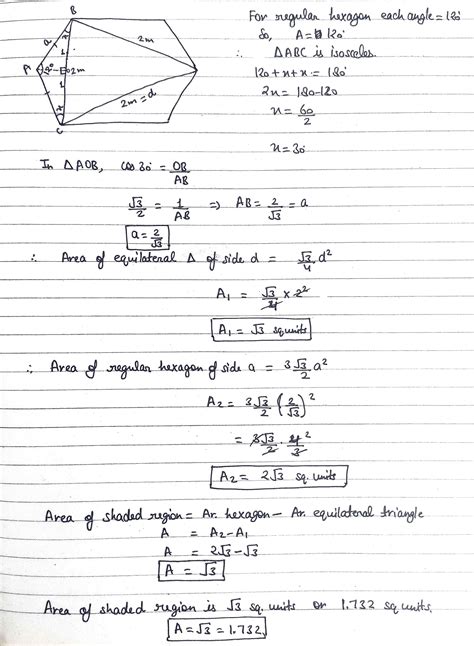 For regular hexagon each angle = 120°
So, A = 120°
∴ ΔABC is isosceles.
120 + x + x = 180°
2x = 180 - 120
x = 60/2
x = 30°
B
a
x
2m
A
120°
1
2m
1
x
2m = d
C
In ΔAOB, cos 30° = OB/AB
√3/2 = 1/AB ⇒ AB = 2/√3 = a
a = 2/√3
∴ Area of equilateral Δ of side d = √3/4 d²
A₁ = √3/4 × 2²
A₁ = √3 sq units
∴ Area of regular hexagon of side a = 3√3/2 a²
A₂ = 3√3/2 (2/√3)²
= 3√3/2 · 4/3 2
A₂ = 2√3 sq. units
Area of shaded region = Ar. hexagon - Ar. equilateral triangle
A = A₂ - A₁
A = 2√3 - √3
A = √3
Area of shaded region is √3 sq. units or 1.732 sq units.
A = √3 = 1.732